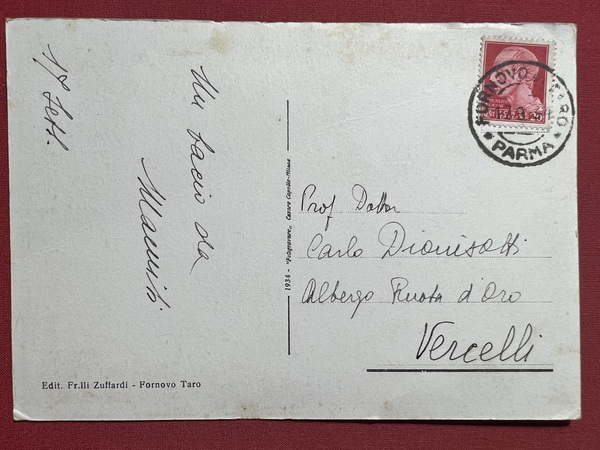 1º Sett.
Un bacio da
Manish
Prof Dottor
Carlo Dionisotti
Albergo Ruota d'Oro
Vercelli
FORNOVO TARO
PARMA
1934 - "Fotogravure", Cesare Capello-Milano
Edit. Fr.lli Zuffardi - Fornovo Taro